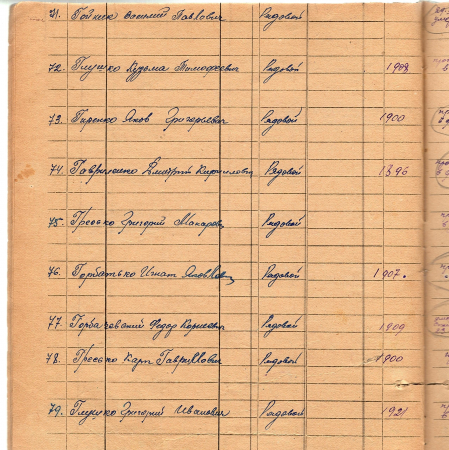 71. Гойник Василий Павлович Рядовой
72. Глушко Кузьма Тимофеевич Рядовой 1908
73. Гаренко Яков Григорьевич Рядовой 1900
74. Гавриленко Дмитрий Кириллович Рядовой 1896
75. Гресько Григорий Макаров Рядовой
76. Горбатько Игнат Яковлевич Рядовой 1907.
77. Горбачевский Федор Корнеевич Рядовой 1909
78. Гресько Карп Гаврилович Рядовой 1900
79. Глушко Григорий Иванович Рядовой 1921